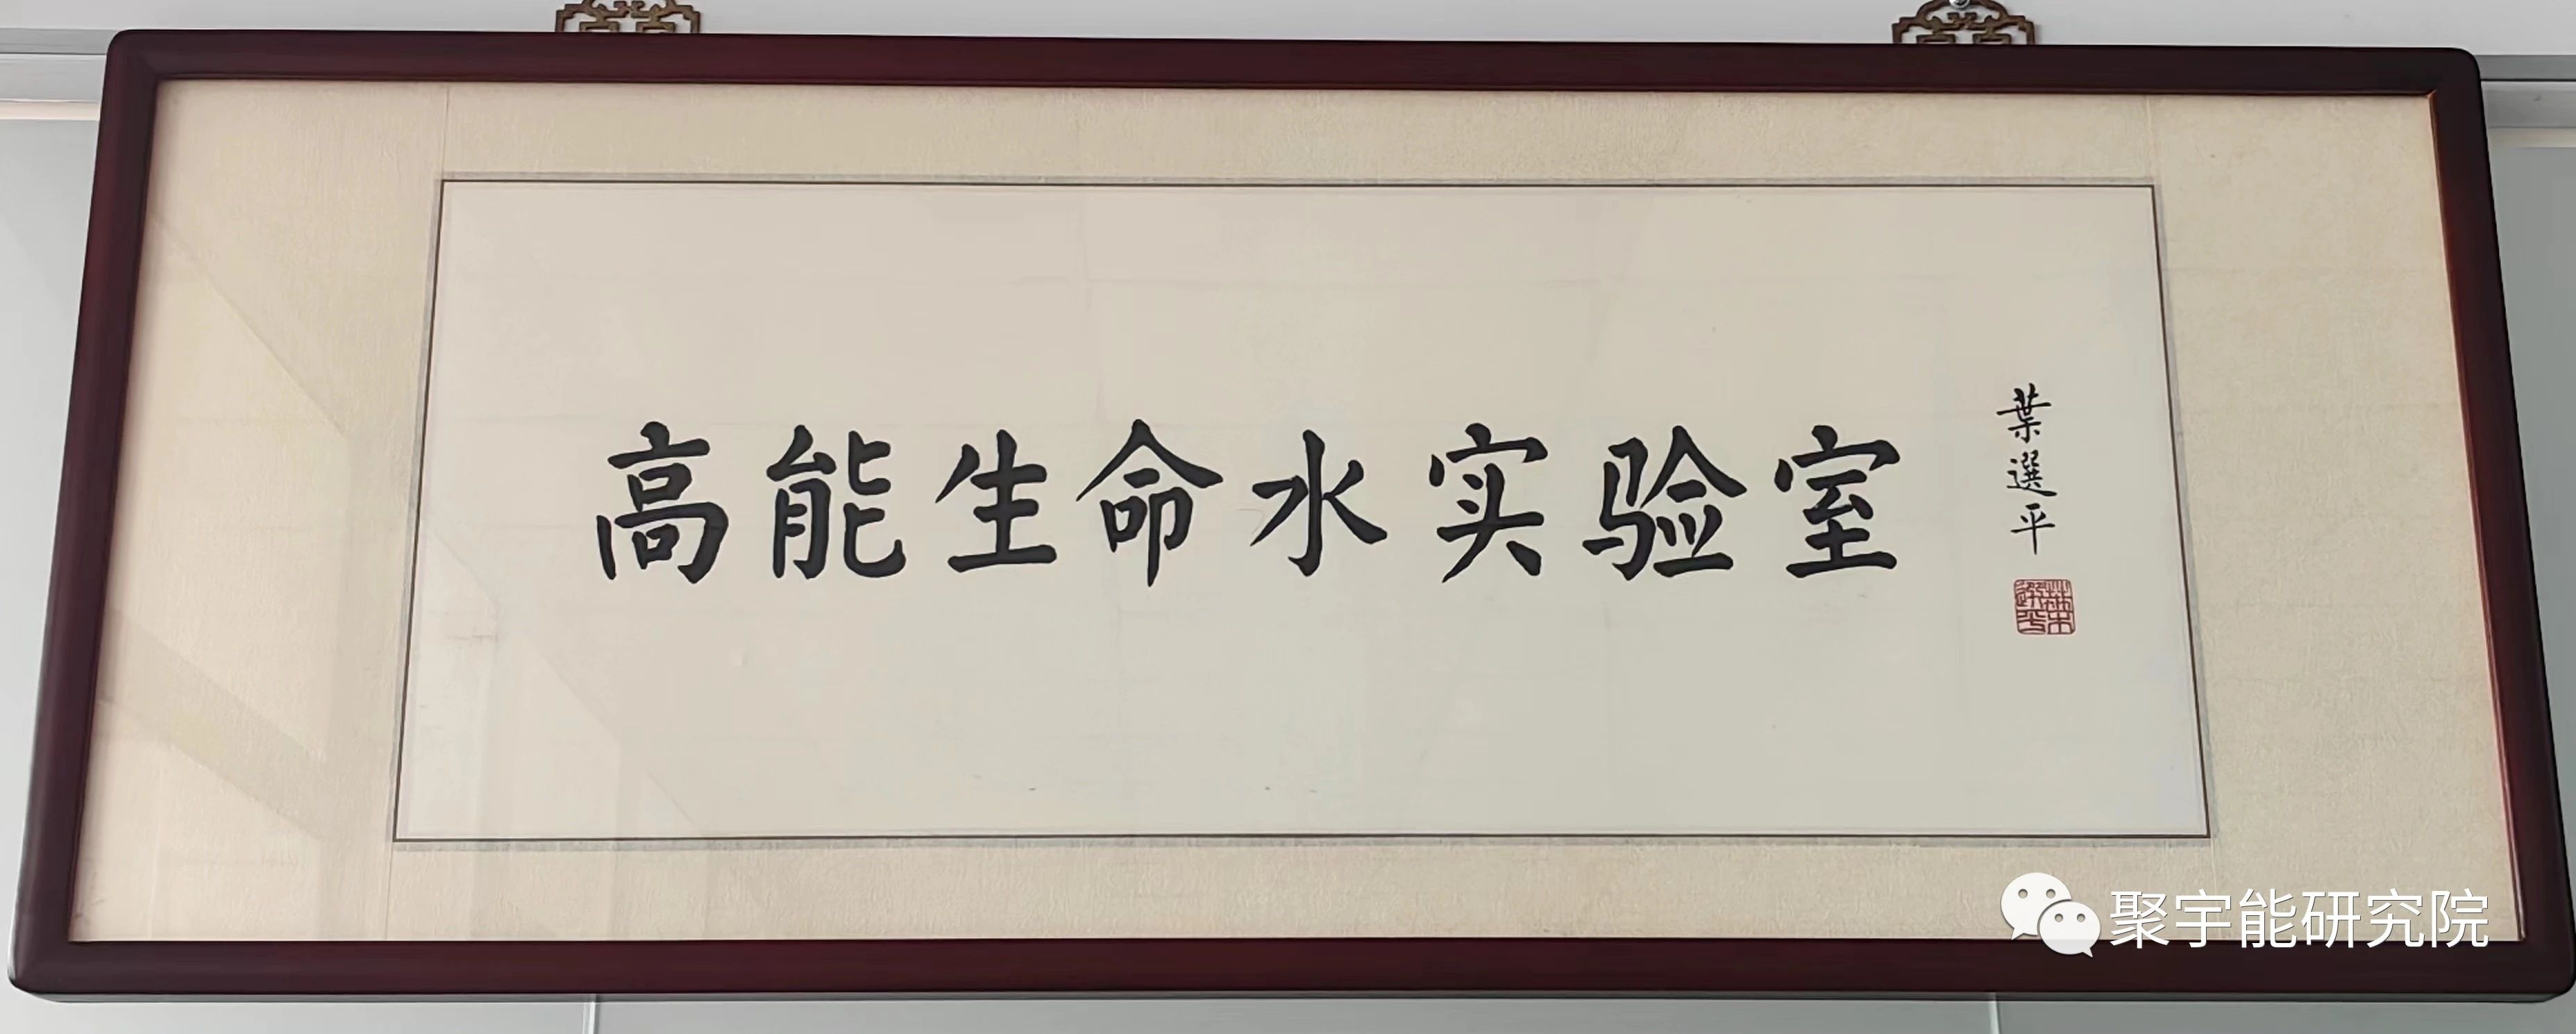 高能生命水实验室
葉選平
葉選平
聚宇能研究院